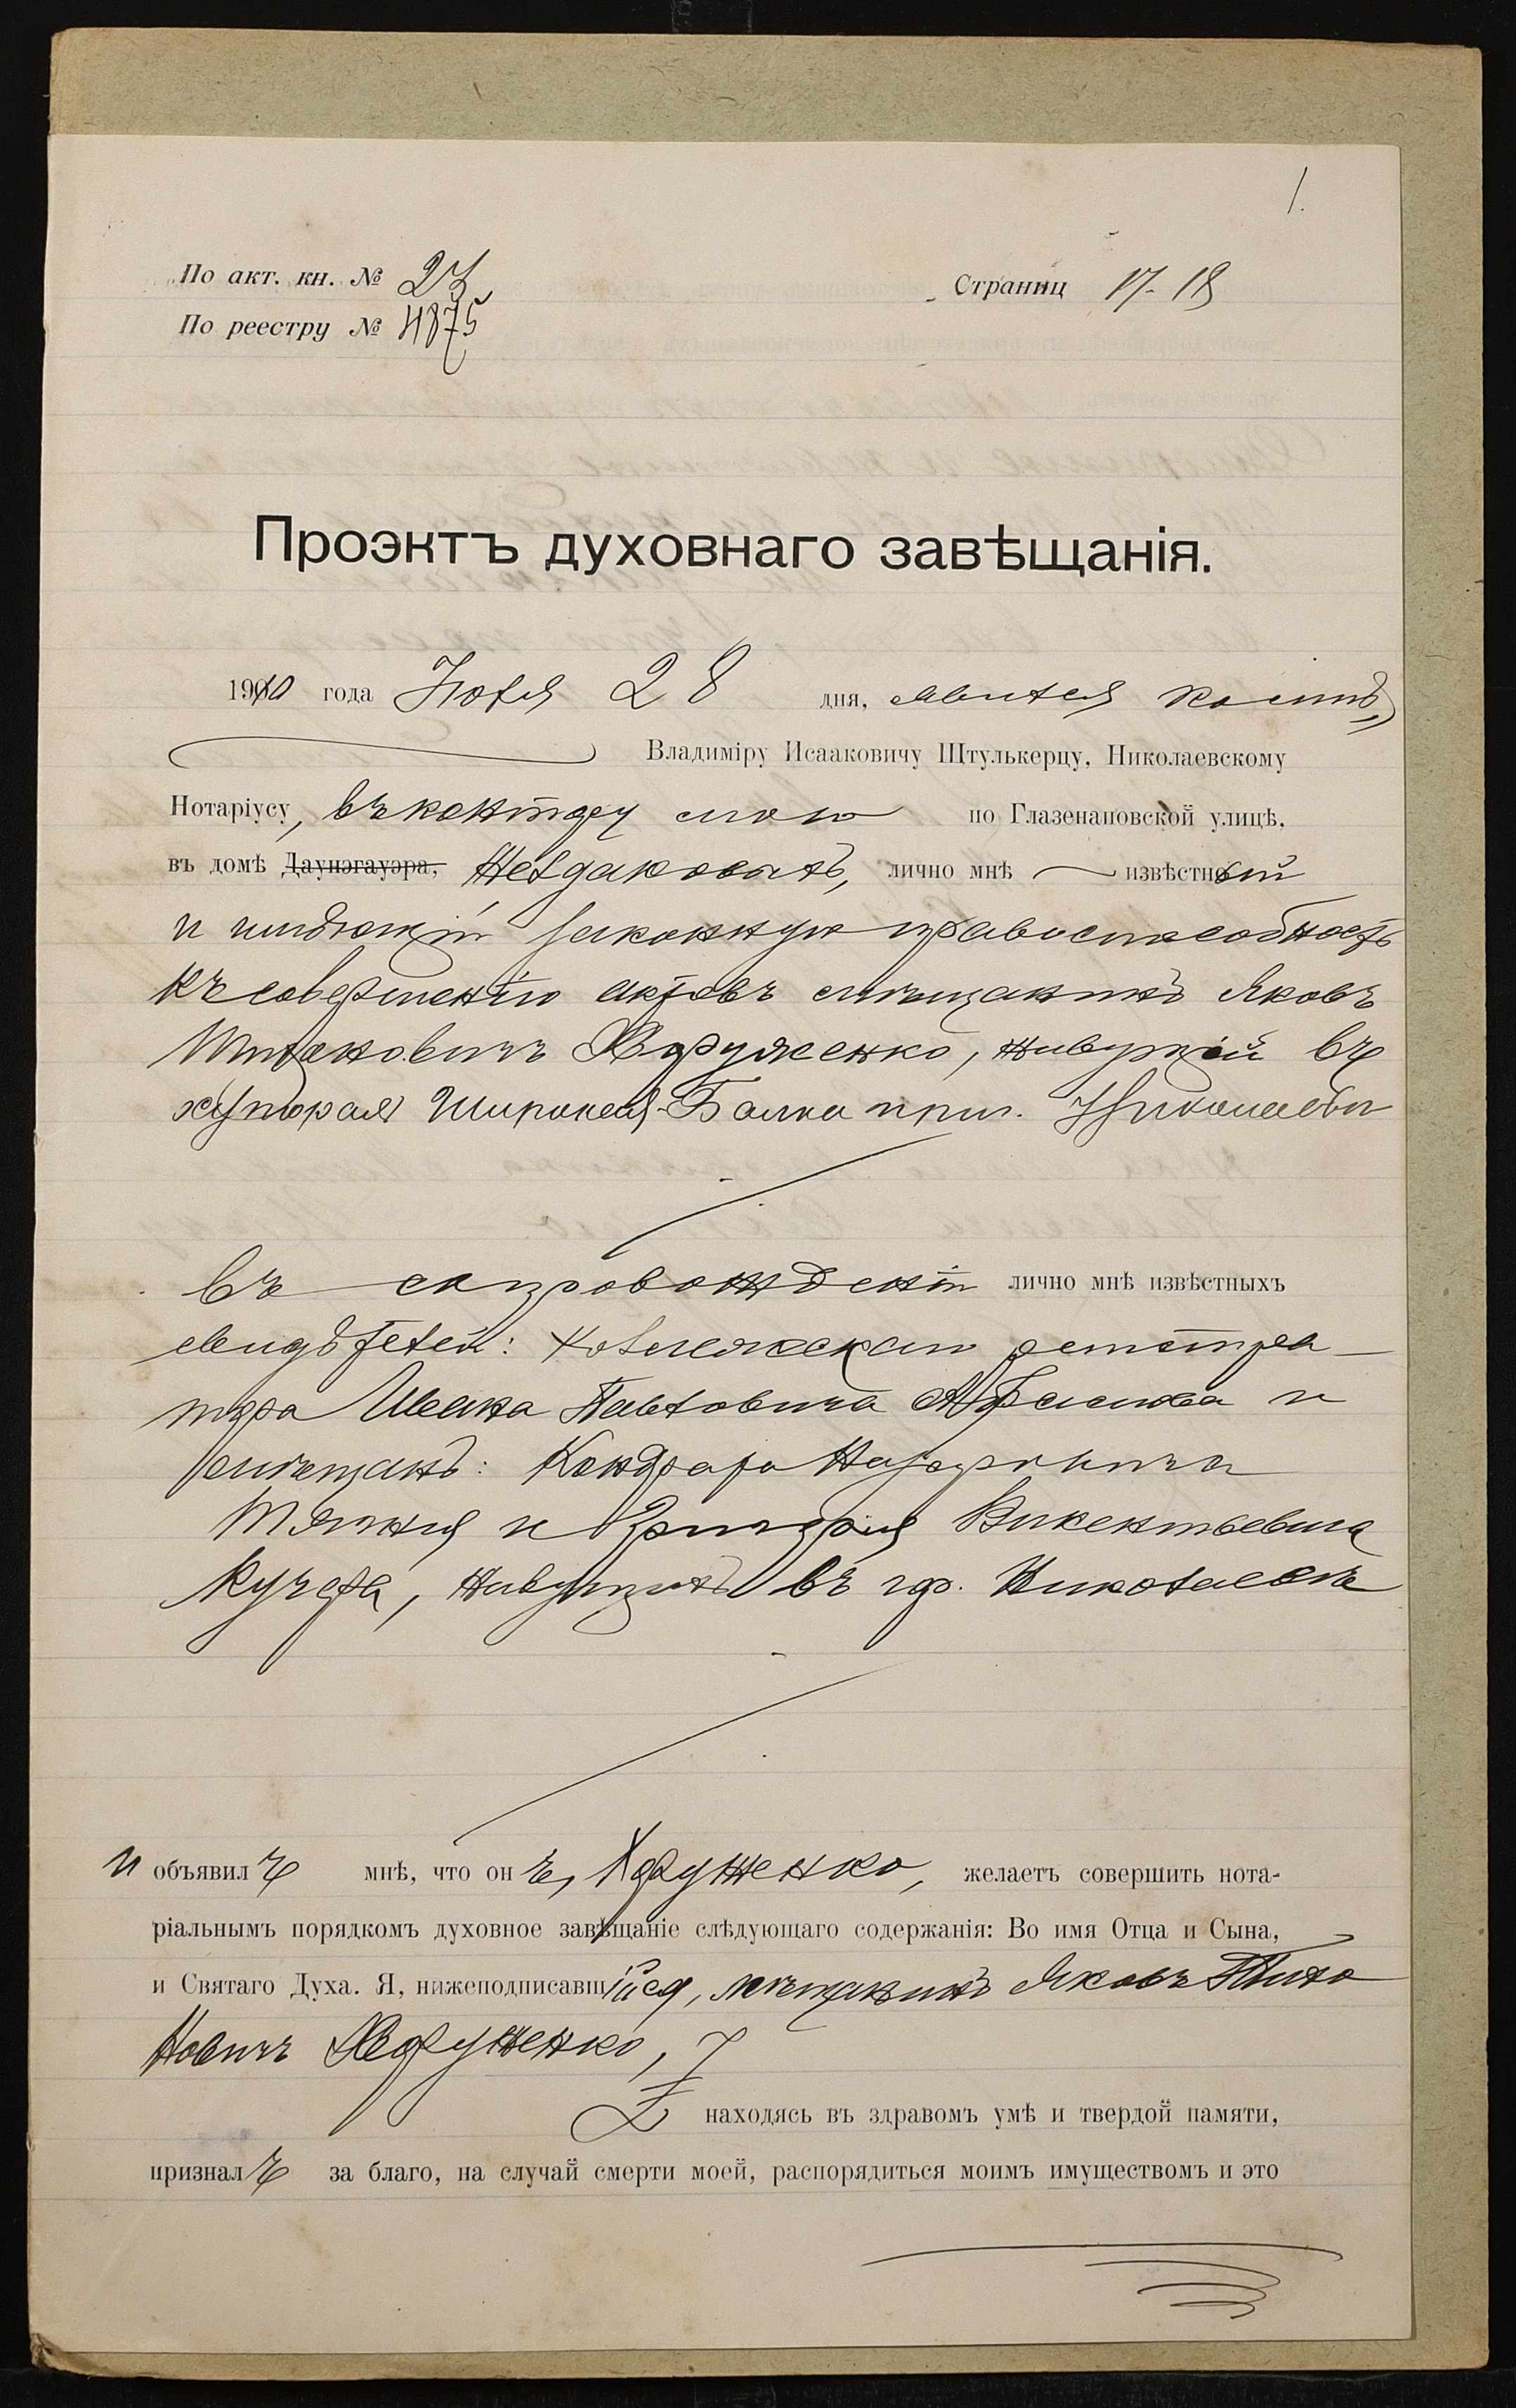 1.
По акт. кн. № 23
Страниц 17-18
По реестру № 4875
Проэктъ духовнаго завѣщанія.
1910 года Іюля 28 дня, явился ко мнѣ,
Владиміру Исааковичу Штулькерцу, Николаевскому
Нотаріусу, въ контору мою по Глазенаповской улицѣ,
въ домѣ Даунэгауэра, лично мнѣ извѣстный
и имѣющій законную правоспособность
къ совершенію актовъ мѣщанинъ Яковъ
Тихоновичъ Хоруженко, живущій въ
хуторахъ Широкая-Балка при г. Николаевѣ
въ сопровожденіи лично мнѣ извѣстныхъ
свидѣтелей: Коллежскаго регистра-
тора Ивана Павловича и
мѣщанъ: Кондрата
и Григорія Викентьевича
Кучера, живущихъ въ гор. Николаевѣ
и объявилъ мнѣ, что онъ, Хоруженко, желаетъ совершить нота-
ріальнымъ порядкомъ духовное завѣщаніе слѣдующаго содержанія: Во имя Отца и Сына,
и Святаго Духа. Я, нижеподписавшійся, мѣщанинъ Яковъ Тихо
новичъ Хоруженко,
находясь въ здравомъ умѣ и твердой памяти,
призналъ за благо, на случай смерти моей, распорядиться моимъ имуществомъ и это